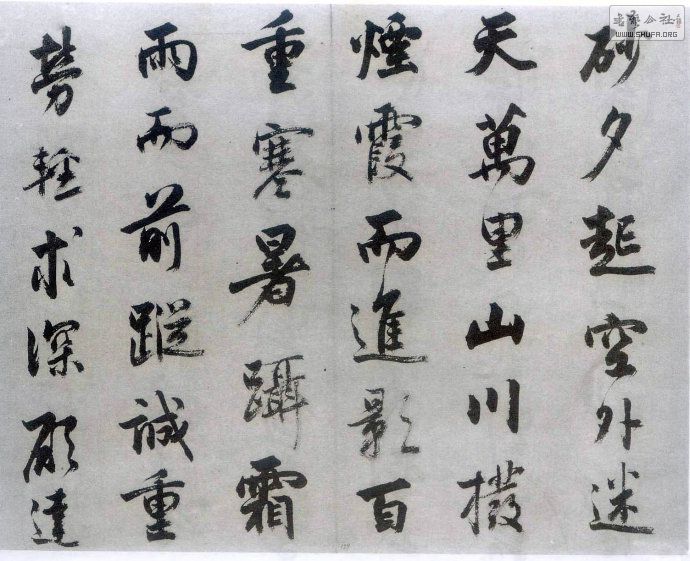 砂夕起空外迷
天萬里山川撥
煙霞而進影百
重寒暑躡霜
雨而前蹤誠重
勞輕求深願達
WWW.SHUFA.ORG